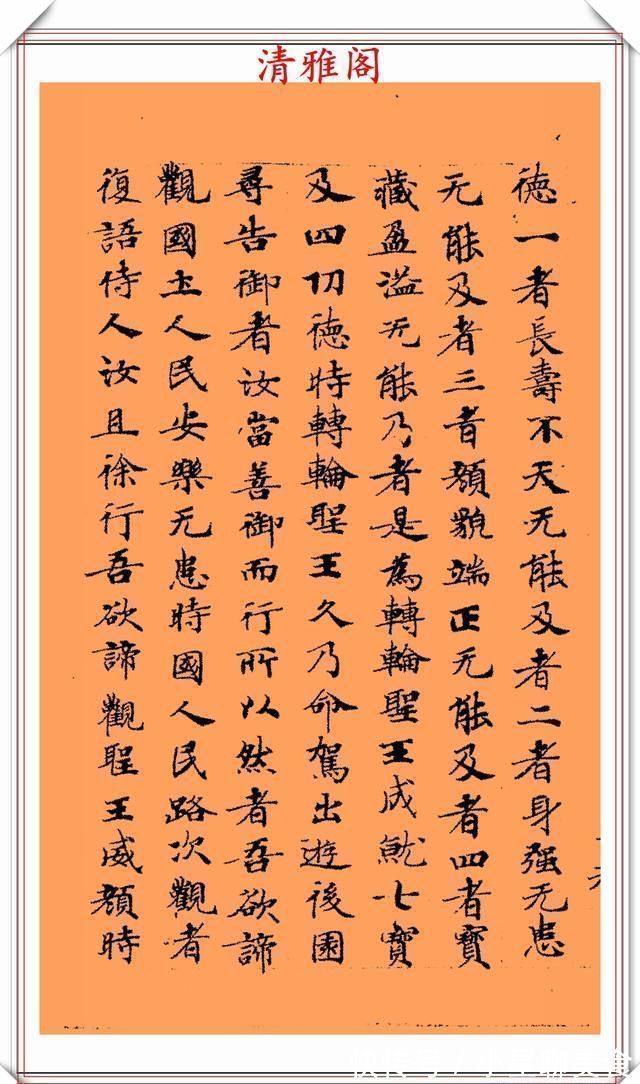 清雅阁
徳一者長壽不夭无能及者二者身强无患
无能及者三者顏貌端正无能及者四者寶
藏盈溢无能乃者是為轉輪聖王成就七寶
及四功徳時轉輪聖王久乃命駕出遊後園
尋告御者汝當善御而行所以然者吾欲諦
觀國土人民安樂无患時國人民路次觀者
復語侍人汝且徐行吾欲諦觀聖王威顏時